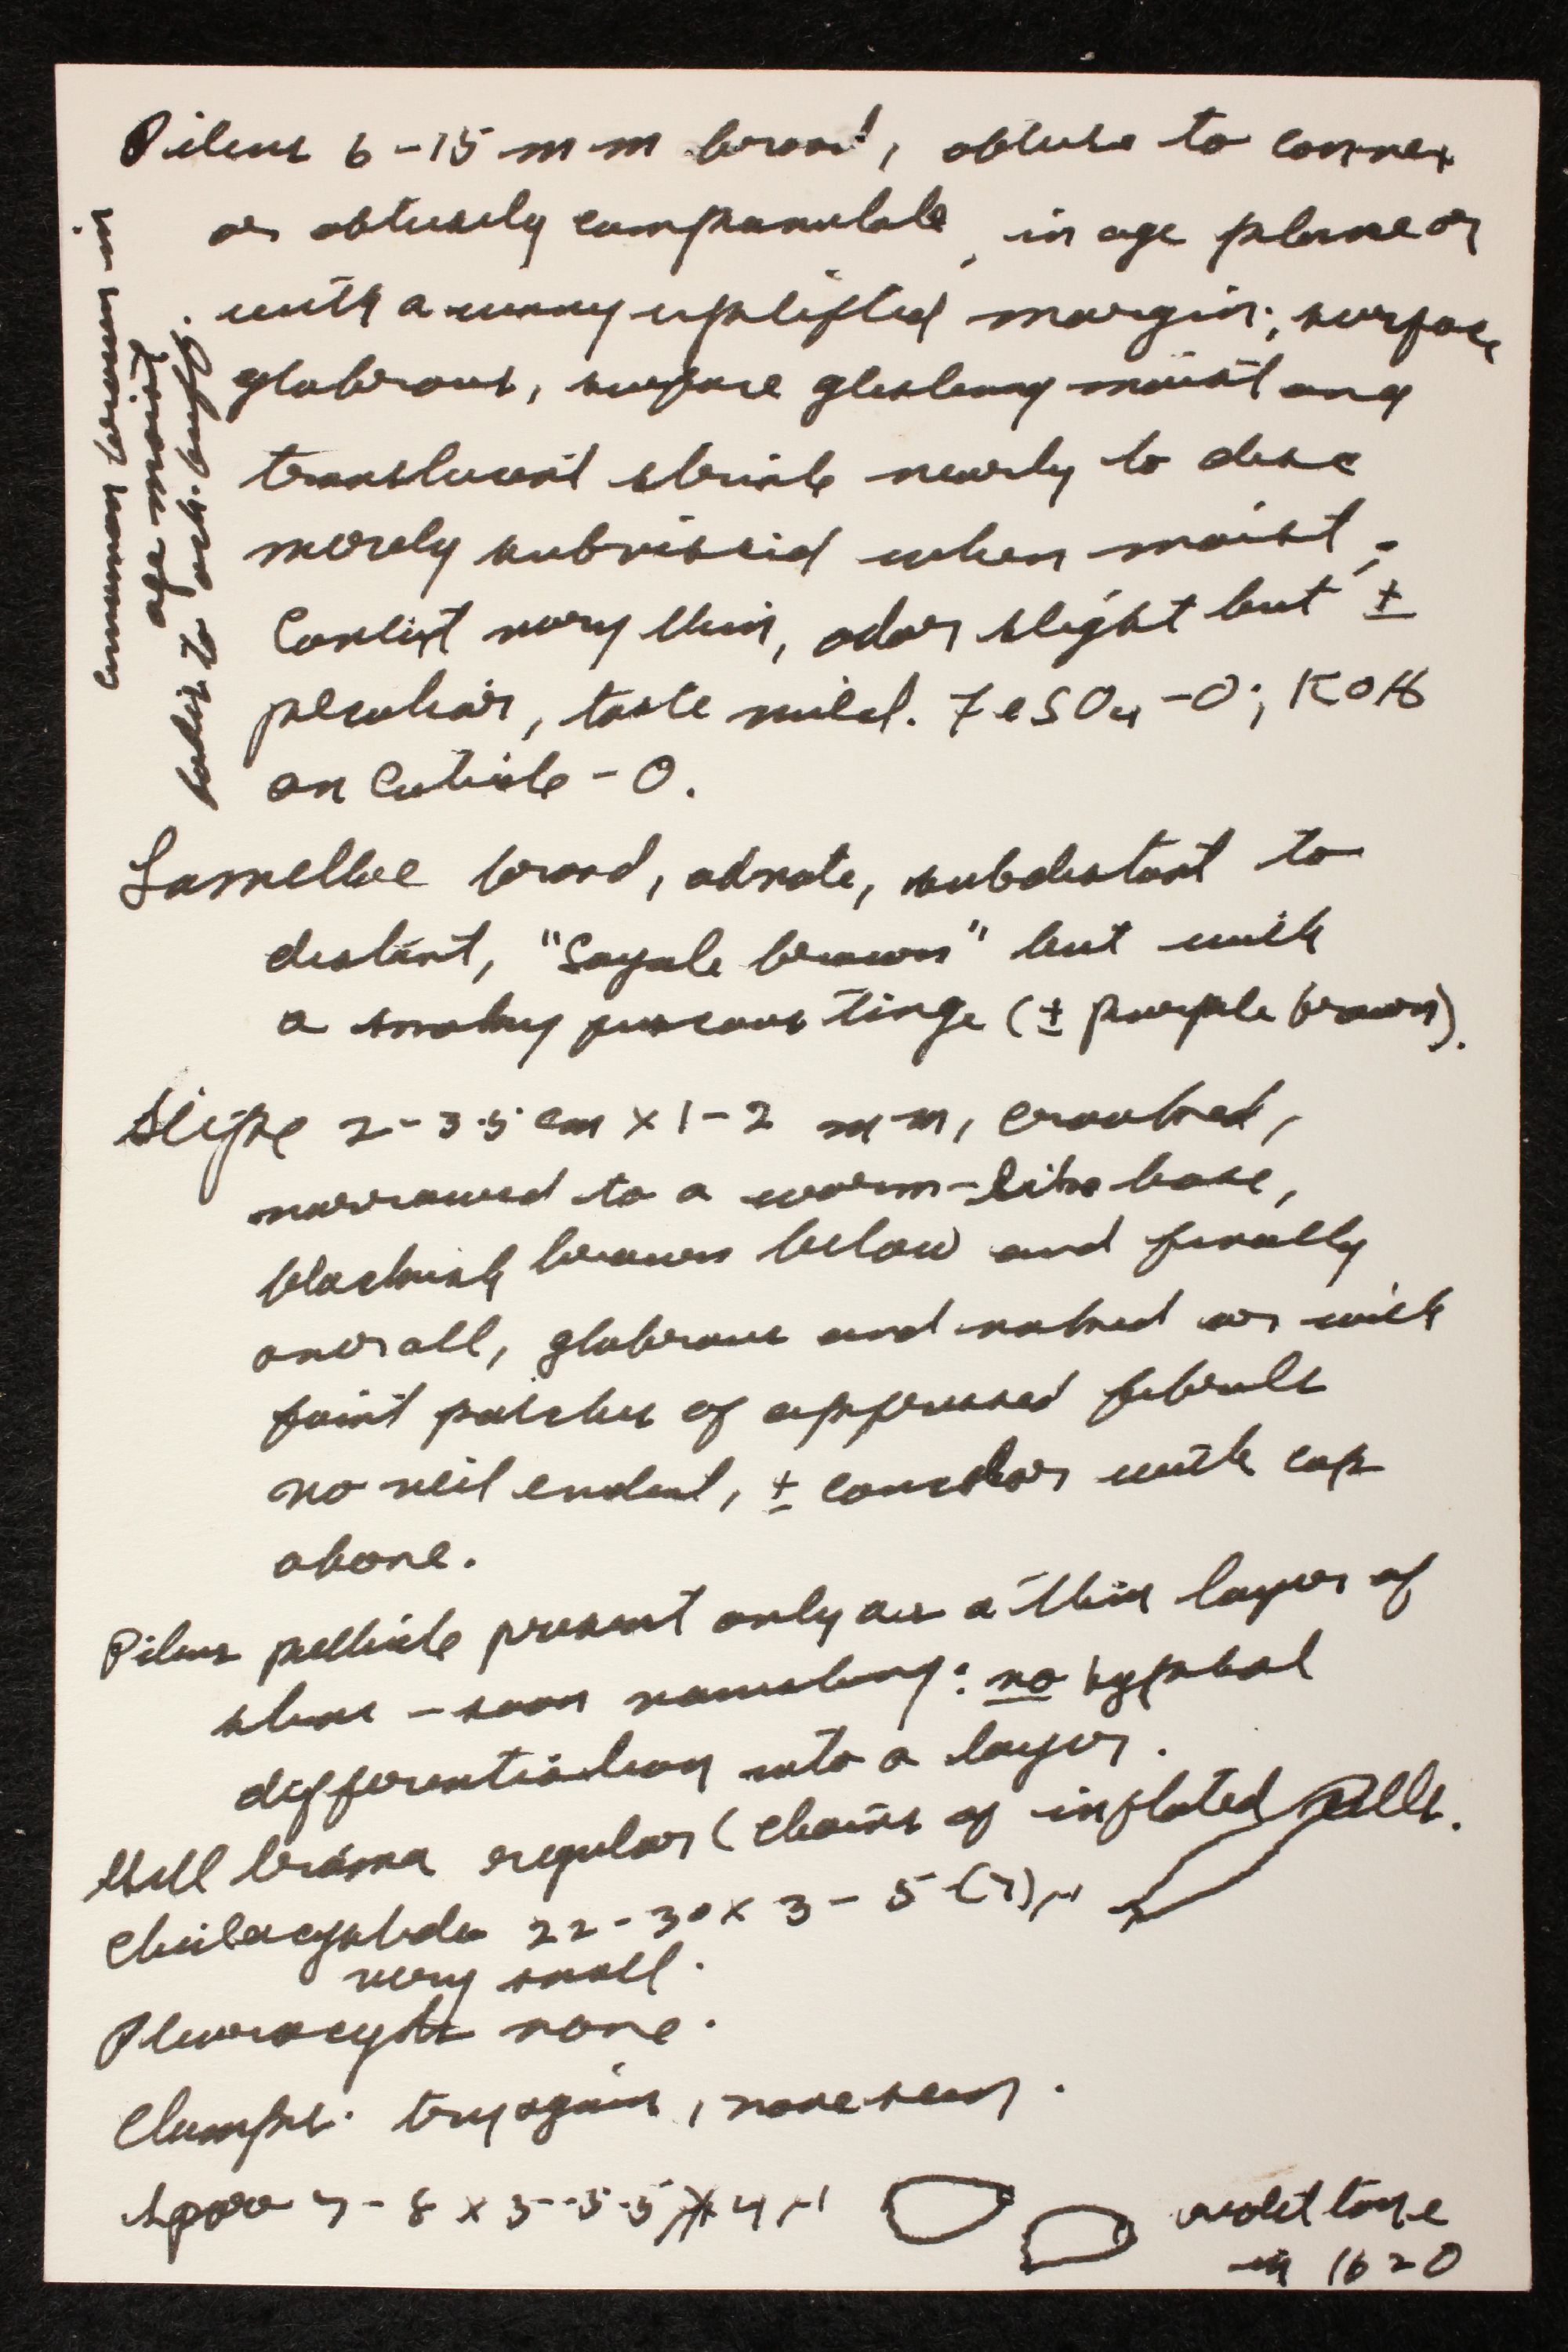 Pileus 6-15 mm broad, obtuse to convex
or obtusely campanulate, in age plane or
with a wavy uplifted margin; surface
glabrous, surface glistening moist and
translucent striate nearly to disc
merely subviscid when moist;
cinnamon brown in
fading to och. buff.
Context very thin, odor slight but ±
peculiar, taste mild. FeSO4 - O; KOH
on cuticle - O.
Lamellae broad, adnate, subdistant to
distant, "Sayale brown" but with
a smoky fuscous tinge (± purple brown).
Stipe 2-3.5 cm x 1-2 mm, crooked,
narrowed to a worm-like base,
blackish brown below and finally
overall, glabrous and naked or with
faint patches of appressed fibrils
no veil evident, ± concolor with cap
above.
Pileus pellicle present only as a thin layer of
slime - soon vanishing: no hyphal
differentiation into a layer.
Gill trama regular (chains of inflated cells.
Cheilocystidia 22-30 x 3-5(7) µ
very small.
Pleurocyst none.
Clamps. try again, none seen.
Spore 7-8 x 5-5.5 x 4 µ violet tone
in H2O